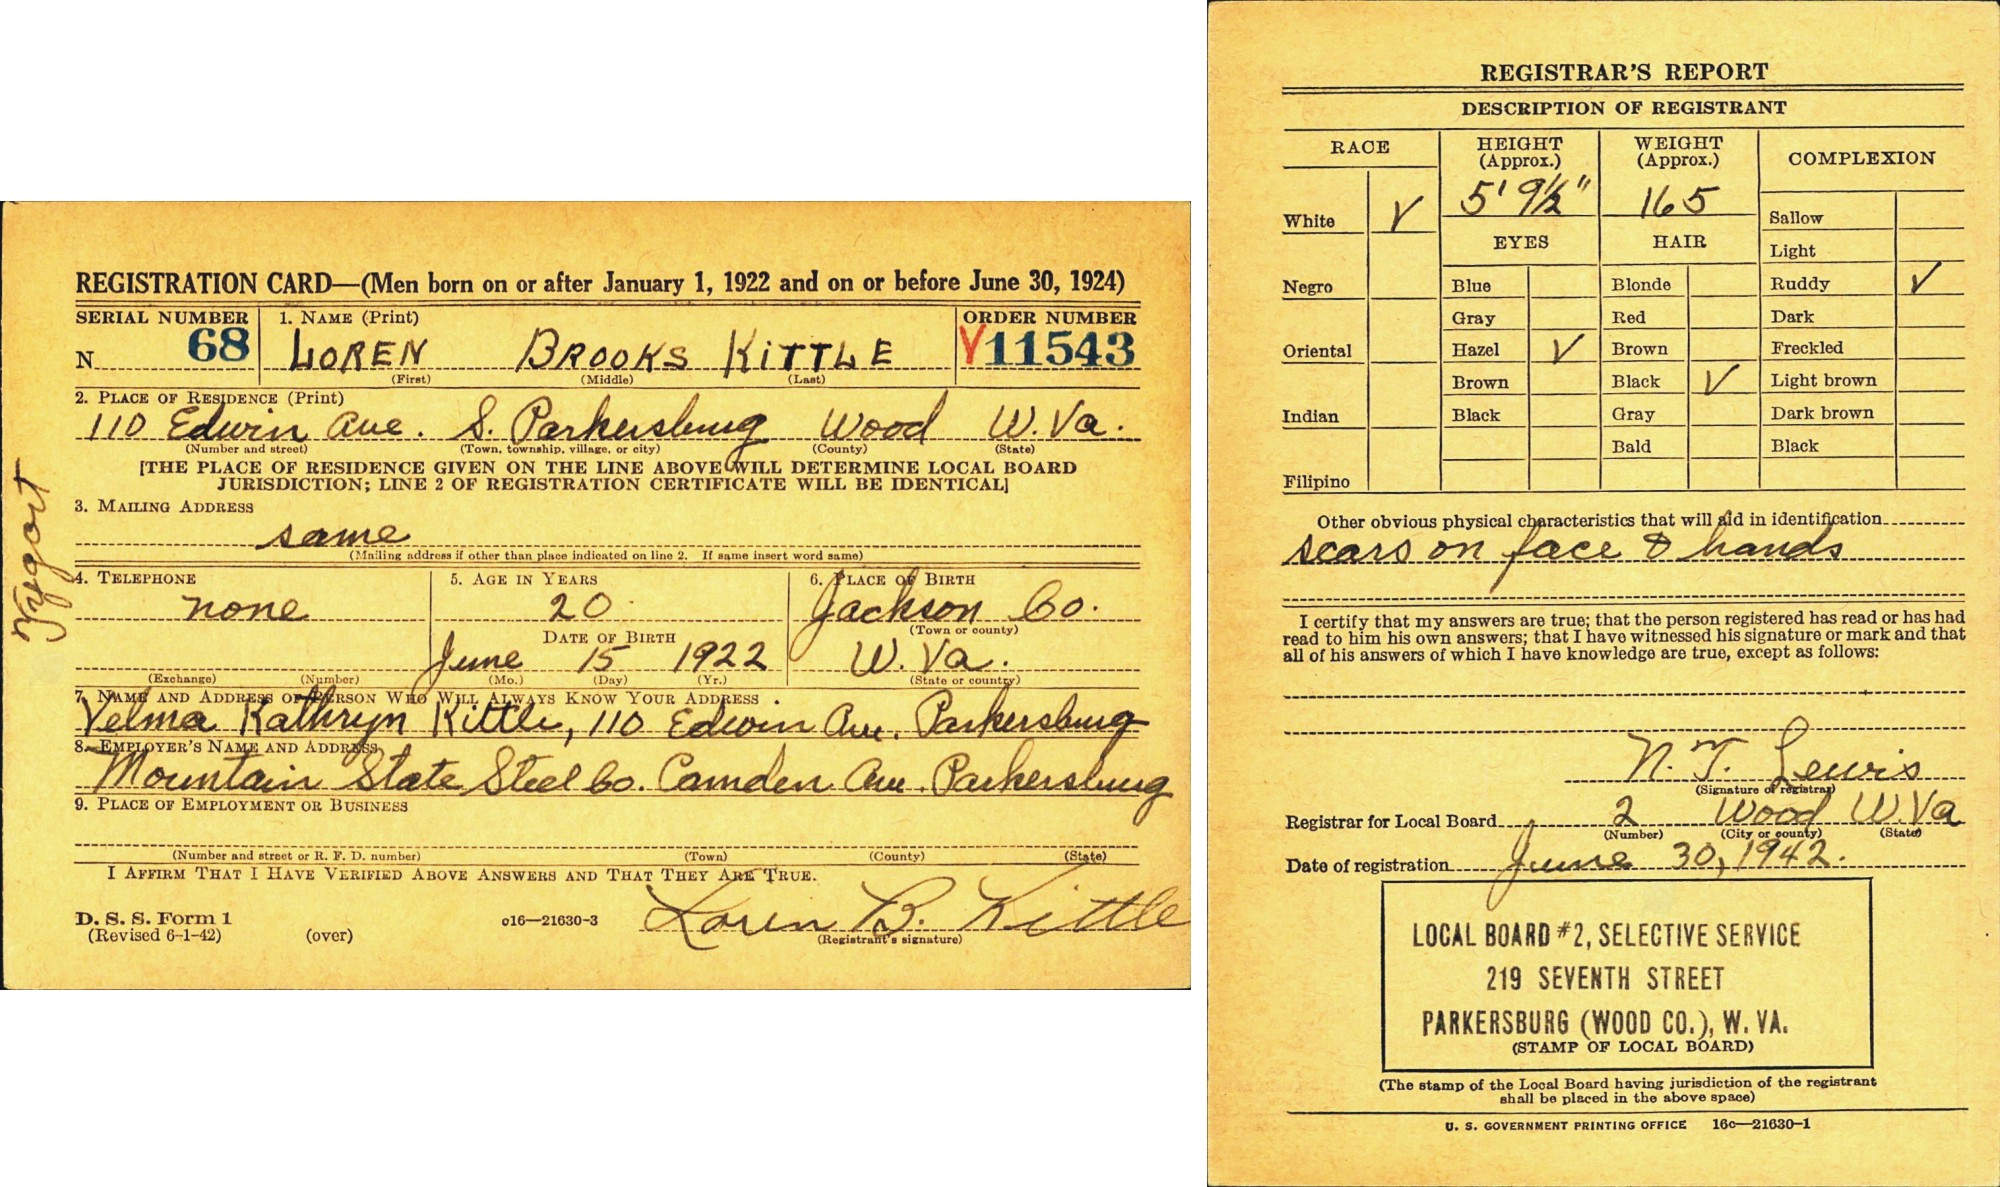 REGISTRATION CARD—(Men born on or after January 1, 1922 and on or before June 30, 1924)
SERIAL NUMBER 1. NAME (Print) ORDER NUMBER
N 68 LOREN BROOKS KITTLE V 11543
(First) (Middle) (Last)
2. PLACE OF RESIDENCE (Print)
110 Edwin Ave. S. Parkersburg Wood W. Va.
(Number and street) (Town, township, village, or city) (County) (State)
[THE PLACE OF RESIDENCE GIVEN ON THE LINE ABOVE WILL DETERMINE LOCAL BOARD
JURISDICTION; LINE 2 OF REGISTRATION CERTIFICATE WILL BE IDENTICAL]
3. MAILING ADDRESS
same
(Mailing address if other than place indicated on line 2. If same insert word same)
4. TELEPHONE 5. AGE IN YEARS 6. PLACE OF BIRTH
none 20 Jackson Co.
(Town or county)
DATE OF BIRTH
June 15 1922 W. Va.
(Exchange) (Number) (Mo.) (Day) (Yr.) (State or country)
7. NAME AND ADDRESS OF PERSON WHO WILL ALWAYS KNOW YOUR ADDRESS
Velma Kathryn Kittle, 110 Edwin Ave. Parkersburg
8. EMPLOYER'S NAME AND ADDRESS
Mountain State Steel Co. Camden Ave. Parkersburg
9. PLACE OF EMPLOYMENT OR BUSINESS
(Number and street or R. F. D. number) (Town) (County) (State)
I AFFIRM THAT I HAVE VERIFIED ABOVE ANSWERS AND THAT THEY ARE TRUE.
D. S. S. Form 1
(Revised 6-1-42) (over) c16—21630-3 Loren B. Kittle
(Registrant's signature)
REGISTRAR'S REPORT
DESCRIPTION OF REGISTRANT
RACE HEIGHT (Approx.) WEIGHT (Approx.) COMPLEXION
5' 9½" 165
White V Sallow
EYES HAIR
Light
Negro Blue Blonde Ruddy V
Gray Red Dark
Oriental Hazel V Brown Freckled
Brown Black V Light brown
Indian Black Gray Dark brown
Bald Black
Filipino
Other obvious physical characteristics that will aid in identification
scars on face & hands
I certify that my answers are true; that the person registered has read or has had
read to him his own answers; that I have witnessed his signature or mark and that
all of his answers of which I have knowledge are true, except as follows:
N. T. Lewis
(Signature of registrar)
Registrar for Local Board 2 Wood W. Va
(Number) (City or county) (State)
Date of registration June 30, 1942.
LOCAL BOARD #2, SELECTIVE SERVICE
219 SEVENTH STREET
PARKERSBURG (WOOD CO.), W. VA.
(STAMP OF LOCAL BOARD)
(The stamp of the Local Board having jurisdiction of the registrant
shall be placed in the above space)
U. S. GOVERNMENT PRINTING OFFICE 16c—21630-1